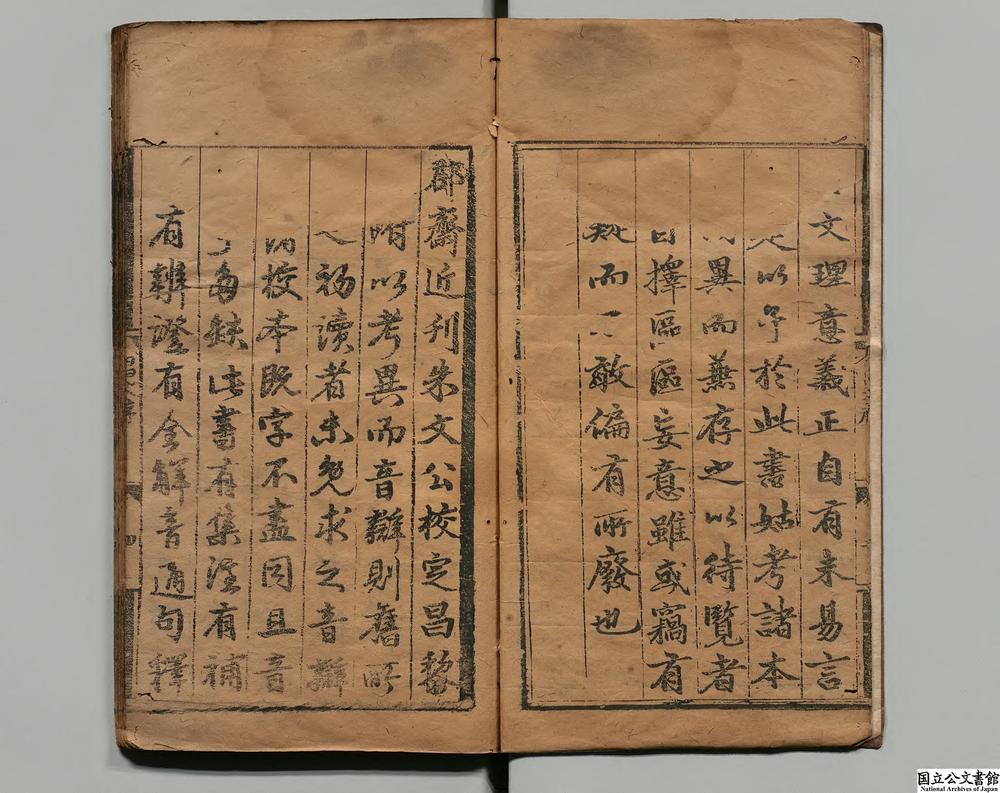 文理意義正自有未易言
以予於此書姑考諸本
異而兼存之以待覽者
自擇區區妄意雖或竊有
而 敢偏有所廢也
郡齋近刊朱文公校定昌黎
附以考異而音辯則舊所
初讀者未免求之音辯
校本既字不盡同且音
多缺此書有集注有補
有辯證有全解音通句釋
国立公文書館
National Archives of Japan